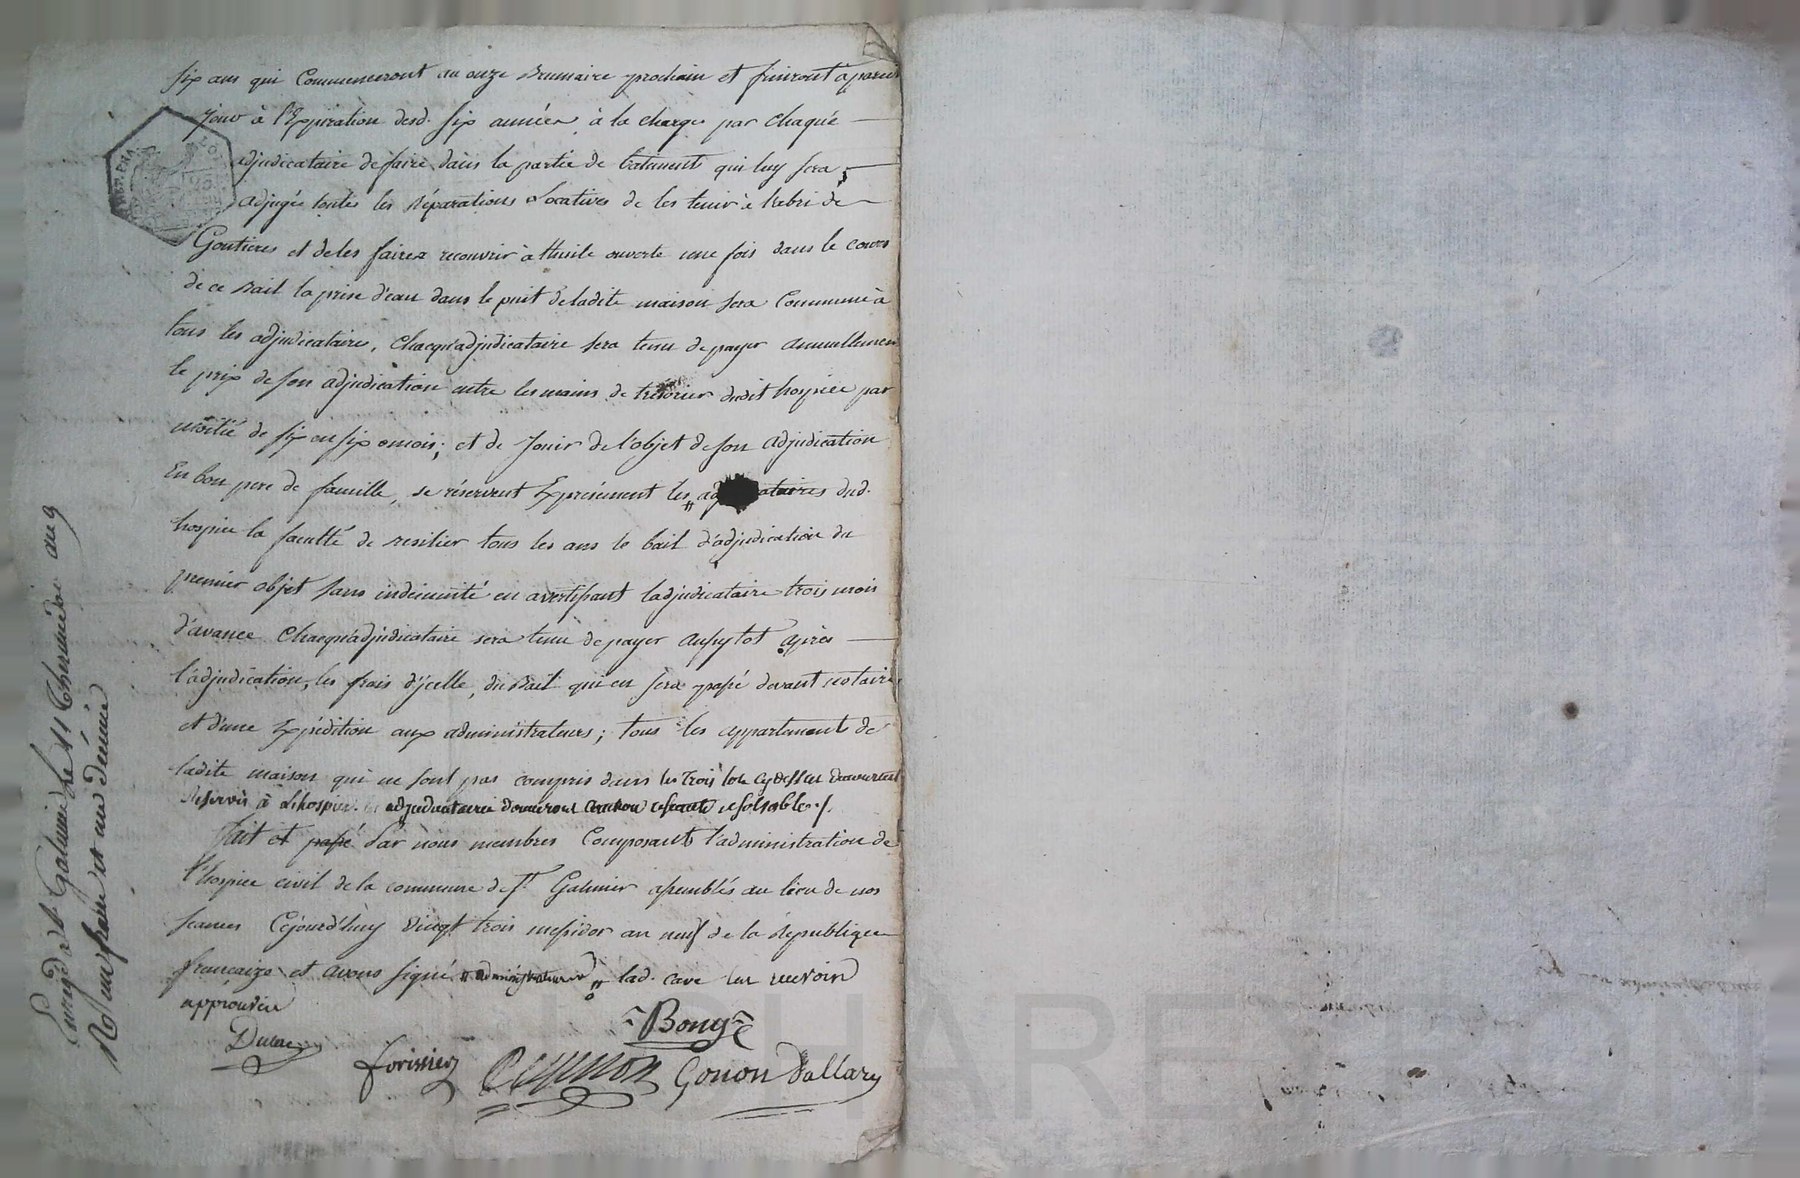 six ans qui Commenceront au onze Brumaire prochain et finiront a pareil
jour à l'Expiration desd. six années, à la charge par chaque
adjudicataire de faire dans la partie de batiment qui luy sera
adjugée toutes les Réparations Locatives de les tenir à l'abri de
Goutieres et de les faire recouvrir à thuile ouverte une fois dans le cours
de ce Bail la prise d'eau dans le puit de ladite maison sera Commune à
tous les adjudicataires, Chacqu'adjudicataire sera tenu de payer annuellement
le prix de son adjudication entre les mains de trésorier dudit hospice par
moitié de six en six mois; et de Jouir de l'objet de son adjudication
En bon pere de famille, se réservent Expressément les dud.
hospice la faculté de resilier tous les ans le bail d'adjudication du
premier objet sans indemnité en avertissant l'adjudicataire trois mois
d'avance Chacqu'adjudicataire sera tenu de payer aussytot après
l'adjudication, les frais d'ycelle, du Bail qui en sera passé devant notaire
et d'une Expédition aux administrateurs; tous les appartement de
ladite maison qui ne sont pas compris dans les trois lots cydessus demeurent
Réservés à L'hospice. adjudicataires donneront caution et solvable ./.
fait et passé Par nous membres Composants l'administration de
l'hospice civil de la commune de St. Galmier assemblés au lieu de nos
seances Cejourd'huy vingt trois messidor an neuf de la République
françaize et avons signé " administrateurs " lad. cave
approuvés
Bouge
forissier
Gonon Dallary
Enregdé à St. Galmier Le 11 Thermidor an 9